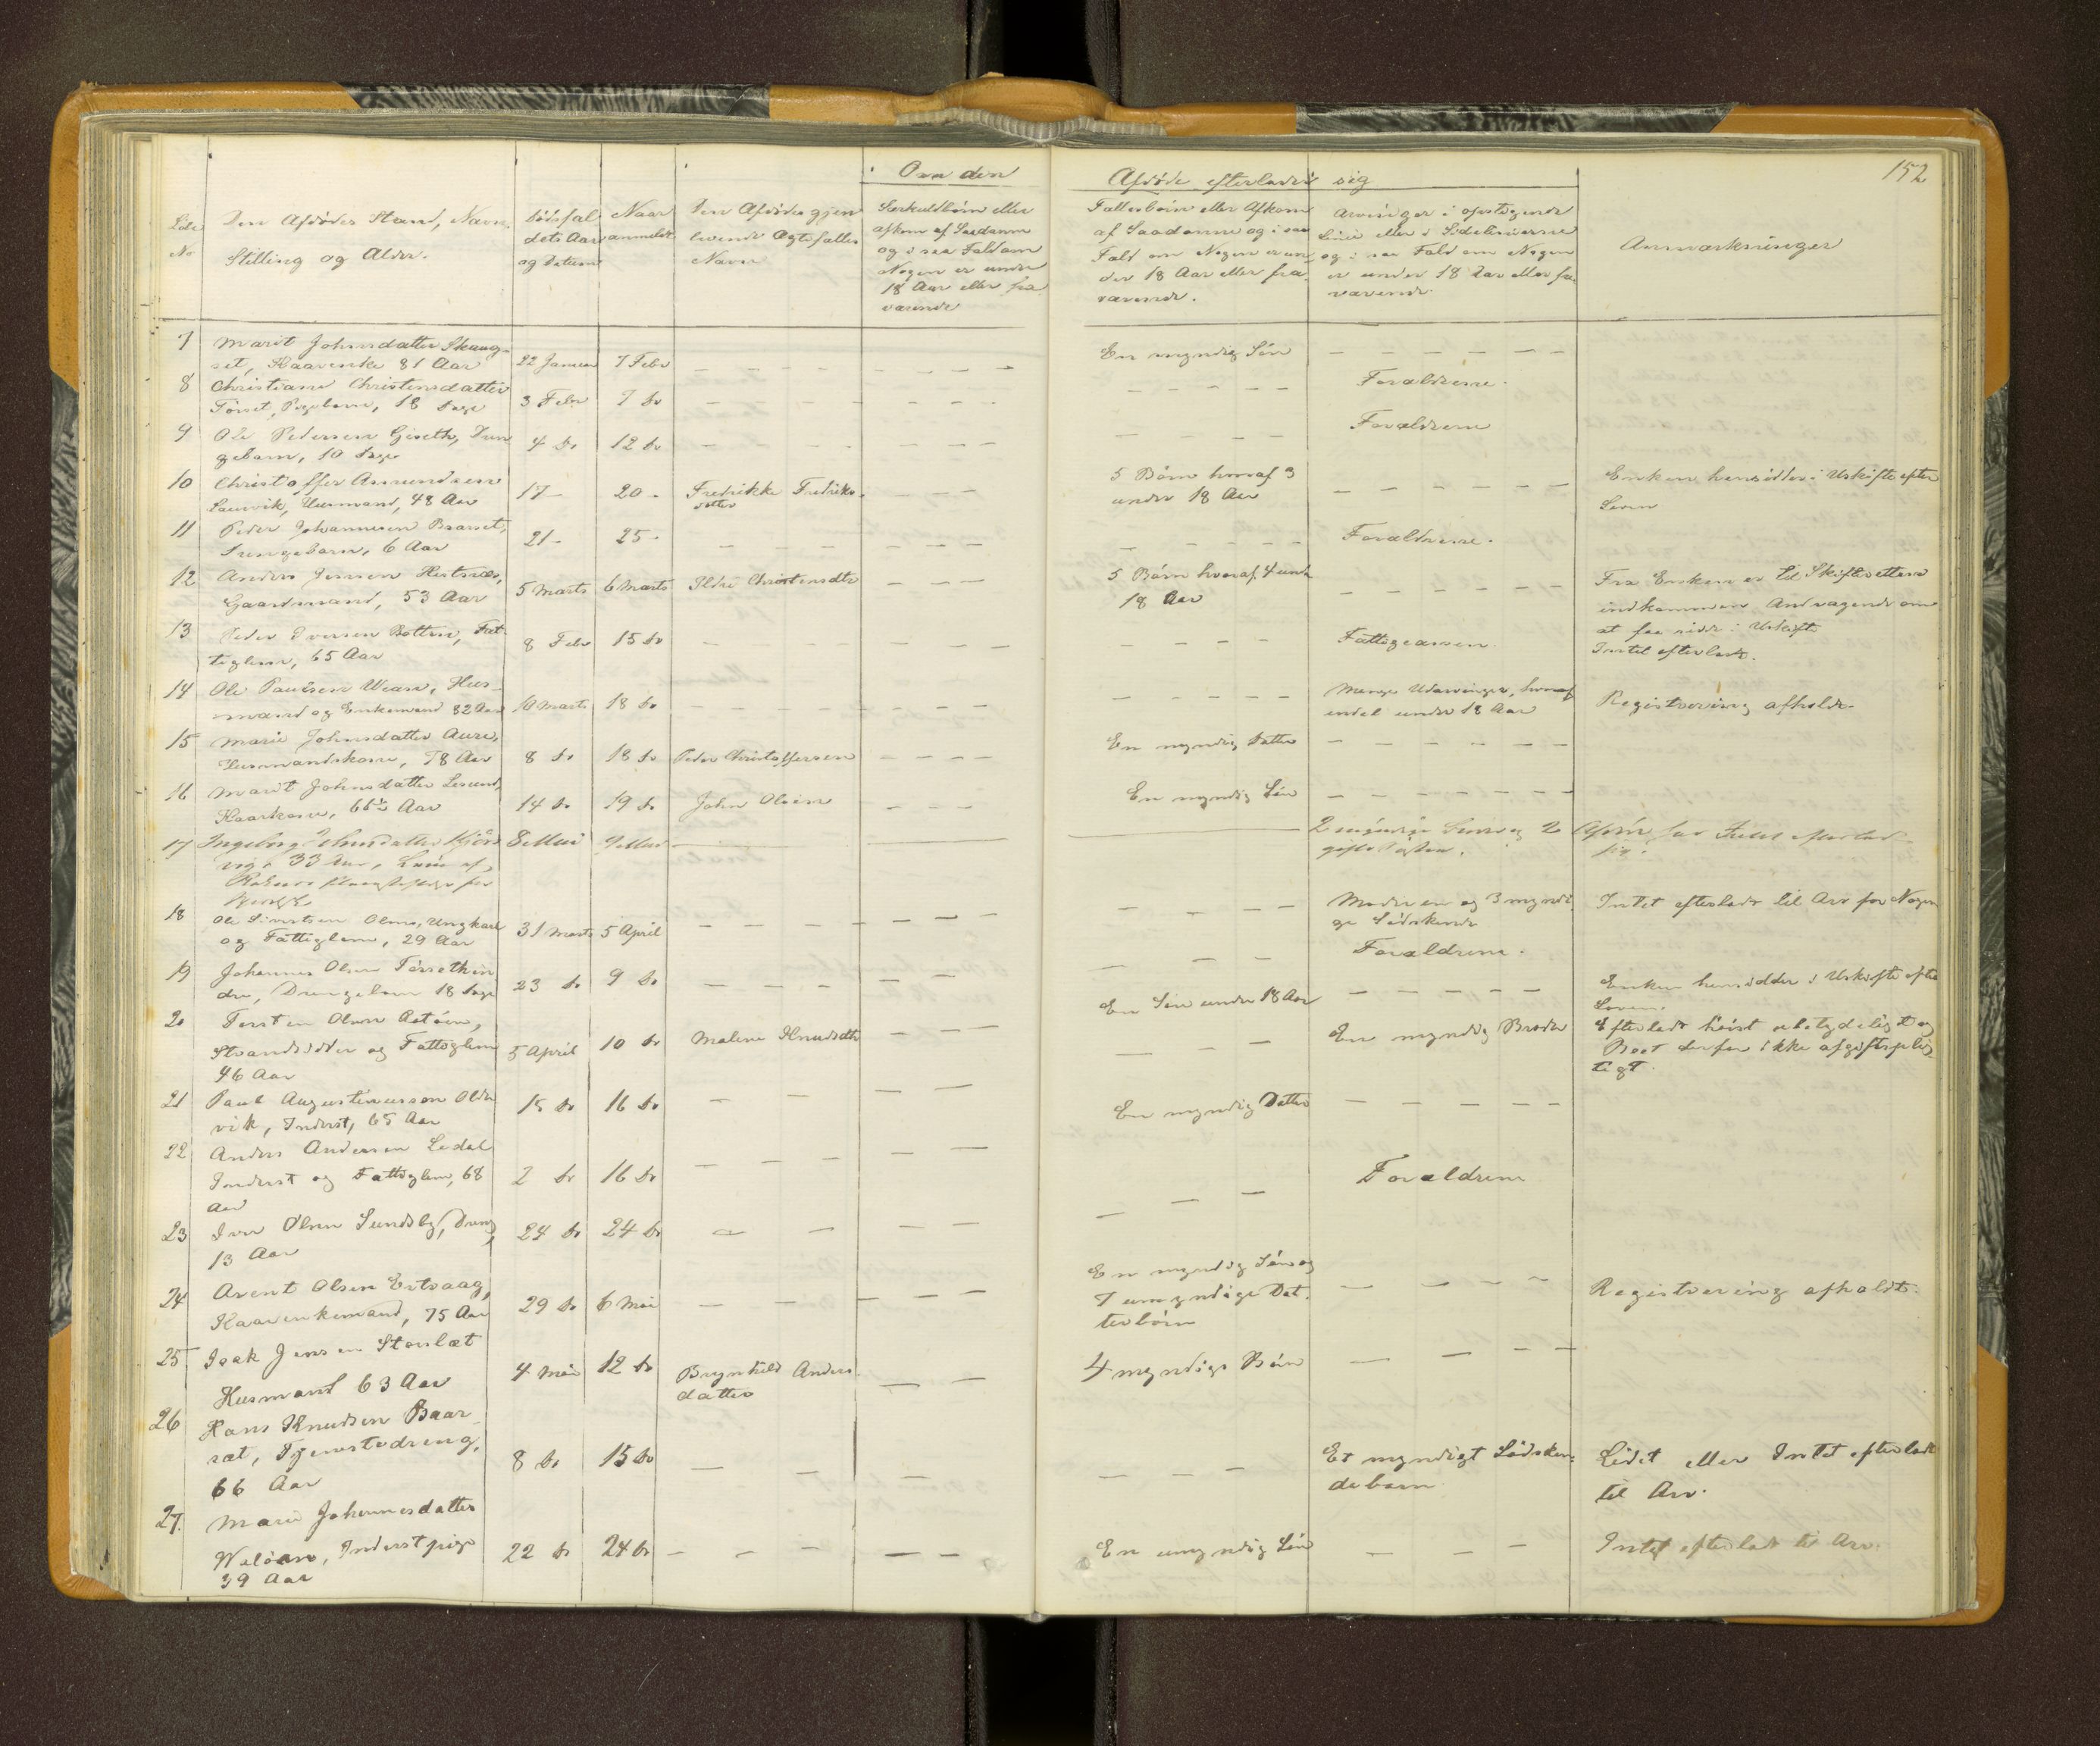 152
Om den
Afdøde efterladt sig
Løbe
No
Den Afdødes Stand, Navn,
Stilling og Alder.
Dødsfal
dets Aar
og Datum
Naar
anmeldt
Den Afdødes gjen
levende Ægtefælles
Navn
Særkuldbørn eller
Afkom af Saadanne
og i saa Fald om
Nogen er under
18 Aar eller fra
værende
Fællesbørn eller Afkom
af Saadanne og i saa
Fald om Nogen er un-
der 18 Aar eller fra-
værende.
Arvinger i opstigende
Linie eller i Sidelinierne
og i saa Fald om Nogen
er under 18 Aar eller fra-
værende.
Anmærkninger
7 Marit Johnsdatter Skaug-
set, Kaarenke 81 Aar 22 Januar 7 Febr En myndig Søn
8 Christiane Christensdatter
Tørset, Pigebarn, 18 Dage 3 Febr 7 Do Forældrene.
9 Ole Pedersen Gjseth, Dren
gebarn, 10 Dage 4 Do 12 Do Forældrene
10 Christoffer Amundsen
Laurvik, Husmand, 48 Aar 17 - 20 - Fredrikke Fredriks-
datter 5 Børn hvoraf 3
under 18 Aar Enken hensidder i Uskifte efter
Loven
11 Peder Johannesen Baarset,
Drengebarn, 6 Aar 21 - 25 - Forældrene.
12 Anders Jensen Hestnes,
Gaardmand, 53 Aar 5 Marts 6 Marts Ildri Christensdtr 5 Børn hvoraf 4 und
18 Aar Fra Enken er til Skifteretten
indkommen Andragende om
at faa sidde i Uskifte
13 Peder Iversen Botten, Fat-
tiglem, 65 Aar 8 Febr 15 Do Fattigcassen Intet efterladt.
14 Ole Paulsen Wean, Hus-
mand og Enkemand 82 Aar 10 Marts 18 Do Mange Udarvinger, hvoraf
endel under 18 Aar Registrering afholdt
15 Marie Johnsdatter Aure,
Husmandskone, 78 Aar 8 Do 18 Do Peder Christoffersen En myndig Datter
16 Marit Johnsdatter Lesund,
Kaarkone, 66½ Aar 14 Do 19 Do John Olsen En myndig Søn
17 Ingeborg Johnsdatter Kjørs
vig, 33 Aar, 8 Mai 9 Mai 2 og 2
gifte Søstre. Afdøde har Intet efterladt
sig.
18 Ole Sivertsen Olme, Ungkarl
og Fattiglem, 29 Aar 31 Marts 5 April Moderen og 3 myndi
ge Sødskende Intet efterladt til Arv for Nogen
19 Johannes Olsen Tørsethin
dre, Drengebarn 18 Dage 23 Do 9 Do Forældrene.
20 Torsten Olsen Aatøen,
Strandsidder og Fattiglem
46 Aar 5 April 10 Do Malene Knudsdtr En Søn under 18 Aar Enken hensidder i Uskifte efter
Loven.
21 Paul Augustinusson Olde
vik, Inderst, 65 Aar 15 Do 16 Do En myndig Broder Efterladt høist ubetydeligt og
Boet derfor ikke afgiftsplig-
tigt.
22 Anders Andersen Ledal
Inderst og Fattiglem, 68
Aar 2 Do 16 Do En myndig Datter
23 Iver Olsen Sundsby, Dreng
13 Aar 24 Do 24 Do Forældrene
24 Arent Olsen Ertvaag,
Kaarenkemand, 75 Aar 29 Do 6 Mai En myndig Søn og
7 umyndige Dat-
terbørn Registrering afholdt.
25 Isak Jensen Storslæt
Husmand 63 Aar 4 Mai 12 Do Brynhild Anders-
datter 4 myndige Børn
26 Hans Knudsen Baar
sæt, Tjenestedreng,
66 Aar 8 Do 15 Do Et myndigt Sødsken-
debarn Lidet eller Intet efterladt
til Arv.
27. Marie Johannesdatter
Weløen, Inderstpige
39 Aar 22 Do 24 Do En umyndig Søn Intet efterladt til Arv.